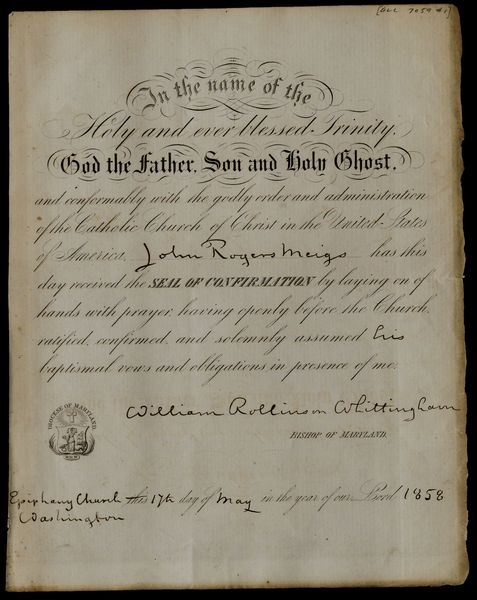 (Acc 7059 #1)
In the name of the
Holy and ever blessed Trinity,
God the Father, Son and Holy Ghost,
and conformably with the godly order and administration
of the Catholic Church of Christ in the United States
of America, John Rogers Meigs has this
day received the SEAL OF CONFIRMATION by laying on of
hands with prayer, having openly before the Church,
ratified, confirmed, and solemnly assumed his
baptismal vows and obligations, in presence of me;
William Rollinson Whittingham
BISHOP OF MARYLAND.
DIOCESE OF MARYLAND
Epiphany Church this 17th day of May in the year of our Lord 1858
Washington